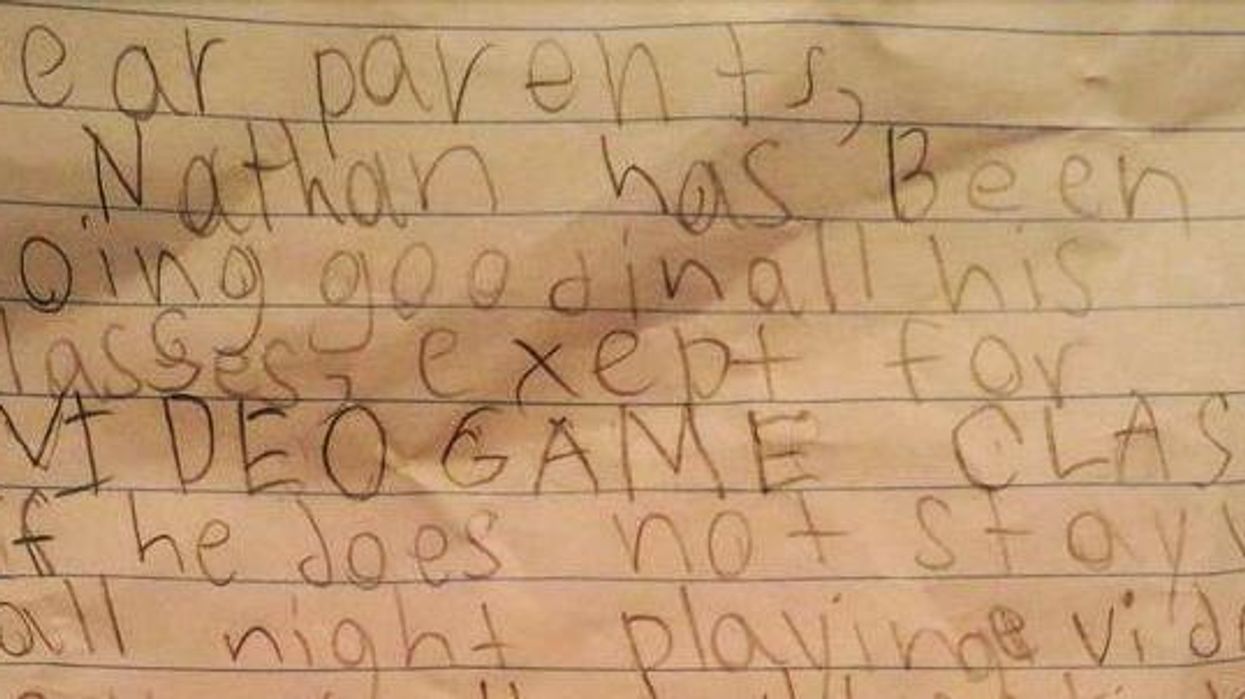 ear parents,
Nathan has Been
oing good in all his
lasses, exept for
VIDEO GAME CLAS
if he does not stay
all night playing vid